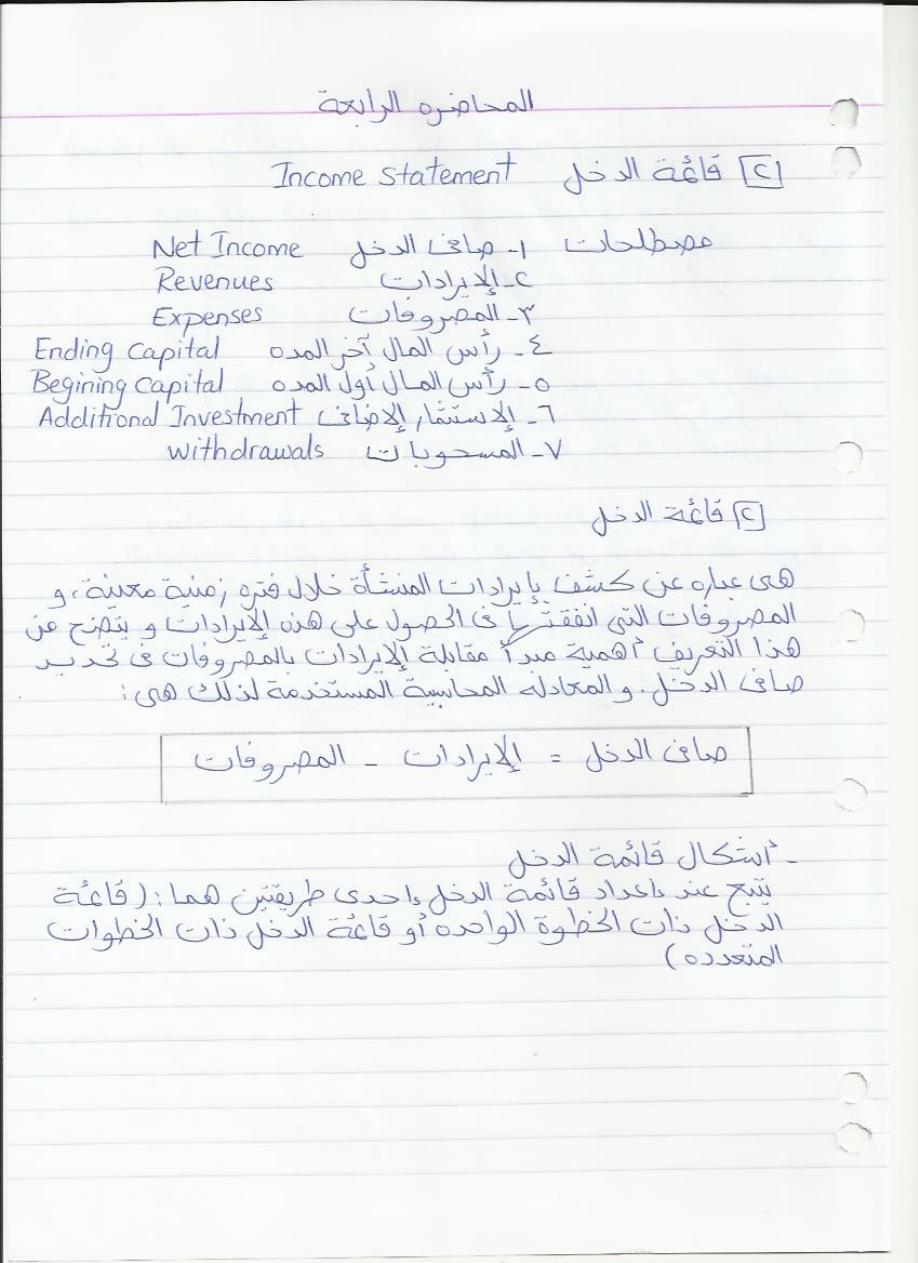 المحاضره الرابعة
[٢] قائمة الدخل Income Statement
مصطلحات ١- صافى الدخل Net Income
٢- الإيرادات Revenues
٣- المصروفات Expenses
٤- رأس المال آخر المده Ending Capital
٥- رأس المال أول المده Begining Capital
٦- الإستثمار الإضافى Additional Investment
٧- المسحوبات withdrawals
[٢] قائمة الدخل
هى عباره عن كشف بإيرادات المنشأة خلال فتره زمنية معينة، و
المصروفات التى انفقتها فى الحصول على هذه الإيرادات و يتضح من
هذا التعريف أهمية مبدأ مقابلة الإيرادات بالمصروفات فى تحديد
صافى الدخل. والمعادله المحاسبية المستخدمة لذلك هى:
صافى الدخل = الإيرادات - المصروفات
- أشكال قائمة الدخل
يتبع عند إعداد قائمة الدخل إحدى طريقتين هما: (قائمة
الدخل ذات الخطوة الواحده أو قائمة الدخل ذات الخطوات
المتعدده)